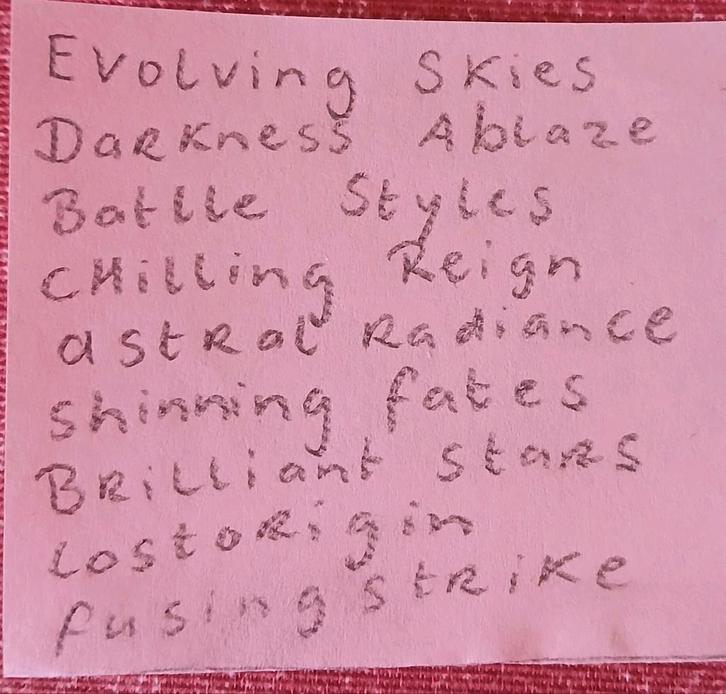 Evolving Skies
Darkness Ablaze
Batlle Styles
CHilling Reign
astRal Radiance
shinning fates
BRilliant staRs
LostoRigin
fusing stRiKe